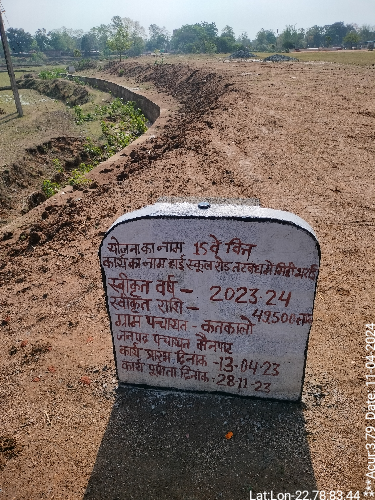 योजना का नाम 15 वे वित्त
कार्य का नाम हाई स्कूल रोड तटबंध में मिट्टी भराई
स्वीकृत वर्ष - 2023-24
स्वीकृत राशि - 49500
ग्राम पंचायत - कतकालो
जनपद पंचायत
कार्य प्रारंभ दिनांक - 13-04-23
कार्य पूर्णता दिनांक - 28-11-23
Lat:Lon-22.78 83.44
***Acur:3.79 Date: 11-04 2024